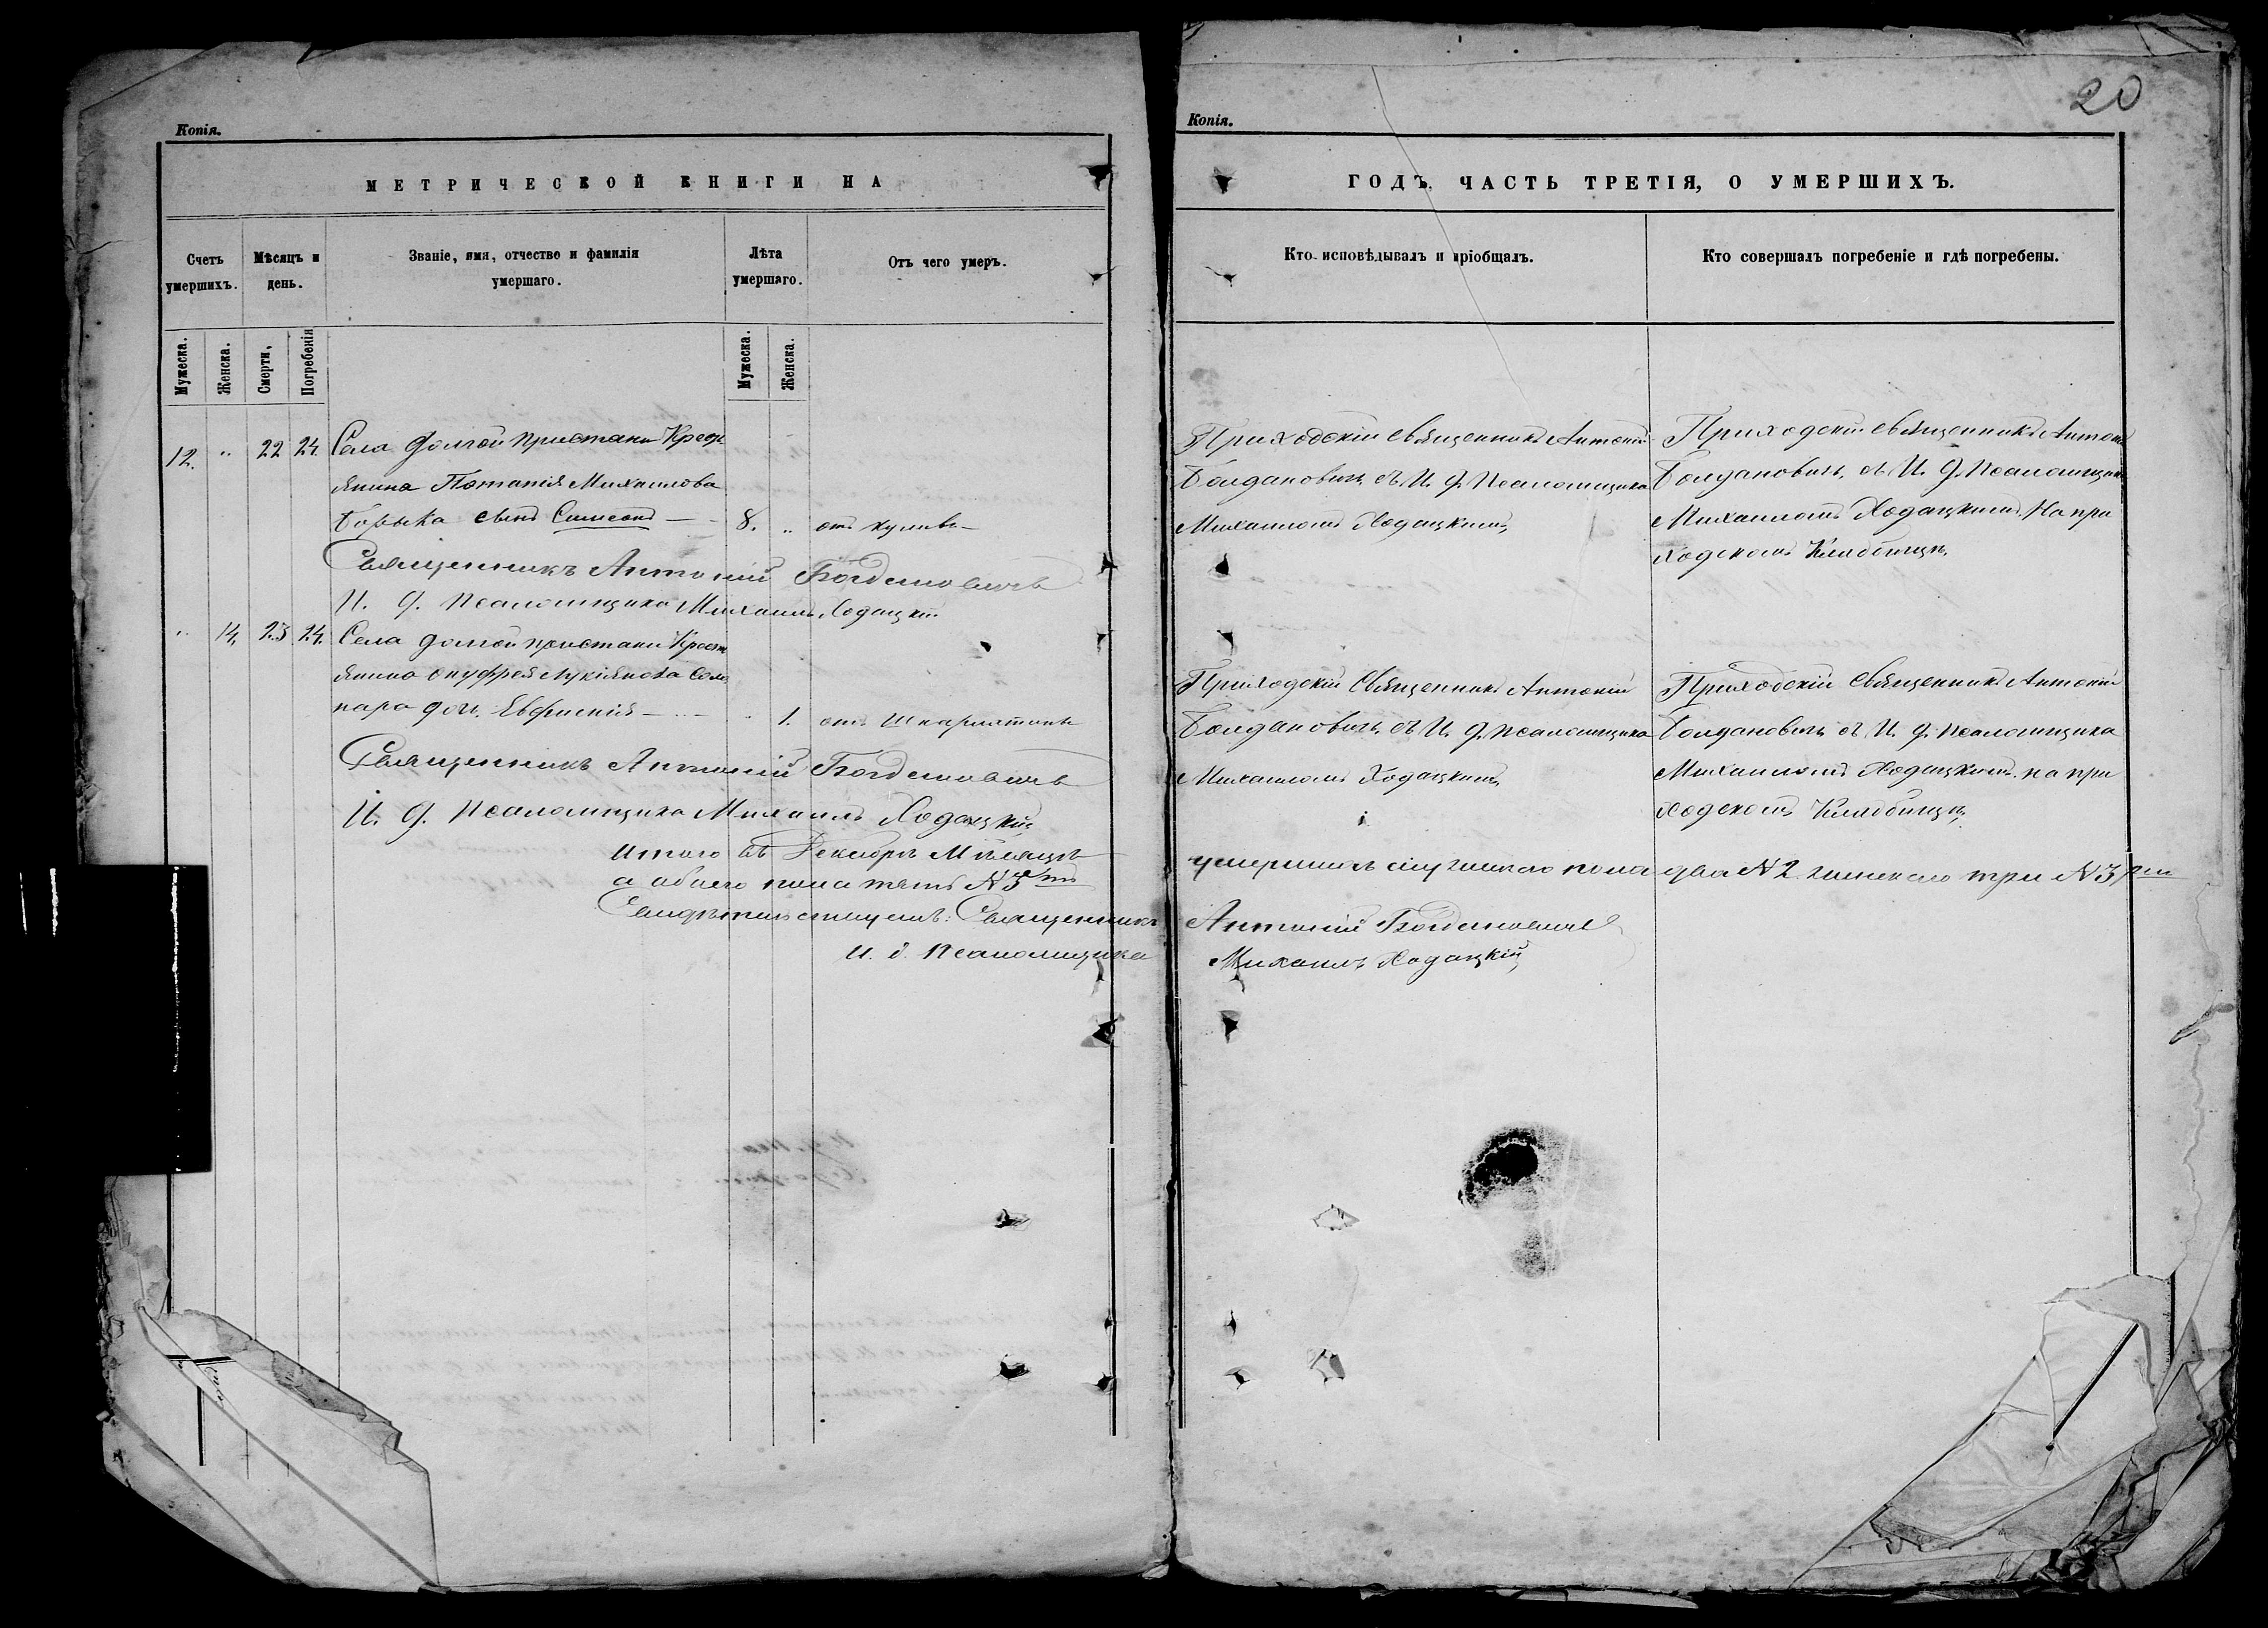 20
Копія.
МЕТРИЧЕСКОЙ КНИГИ НА
Счетъ умершихъ.
Мѣсяцъ и день.
Званіе, имя, отчество и фамилія умершаго.
Лѣта умершаго.
Отъ чего умеръ.
Мужеска.
Женска.
Смерти,
Погребенія
Мужеска.
Женска.
12. " 22 24. Села Долгой Пристани Крест
янина Потапія Михаилова
сынъ Симеонъ — 8. "
Священникъ Антоній Богдановичъ
И. д. Псаломщика Михаилъ Ходацкій
" 14. 23 24. Села Долгой пристани Крест
янина Онуфрея Лукіянова
дочь Евфимія — 1. отъ Шкарлатины
Священникъ Антоній Богдановичъ
И. д. Псаломщика Михаилъ Ходацкій
Итого въ Декабрѣ Мѣсяцѣ
а обоего пола пять №5
Священникъ
И. д. Псаломщика
Копія.
ГОДЪ, ЧАСТЬ ТРЕТІЯ, О УМЕРШИХЪ.
Кто исповѣдывалъ и пріобщалъ.
Кто совершалъ погребеніе и гдѣ погребены.
Приходскій Священникъ Антоній
Богдановичъ съ И. д. Псаломщика
Михаиломъ Ходацкимъ
Приходскій Священникъ Антоній
Богдановичъ съ И. д. Псаломщика
Михаиломъ Ходацкимъ. На при
ходскомъ Кладбищѣ
Приходскій Священникъ Антоній
Богдановичъ съ И. д. Псаломщика
Михаиломъ Ходацкимъ
Приходскій Священникъ Антоній
Богдановичъ съ И. д. Псаломщика
Михаиломъ Ходацкимъ на при
ходскомъ Кладбищѣ
умершихъ мужескаго пола два №2 женскаго три №3
Антоній Богдановичъ
Михаилъ Ходацкій